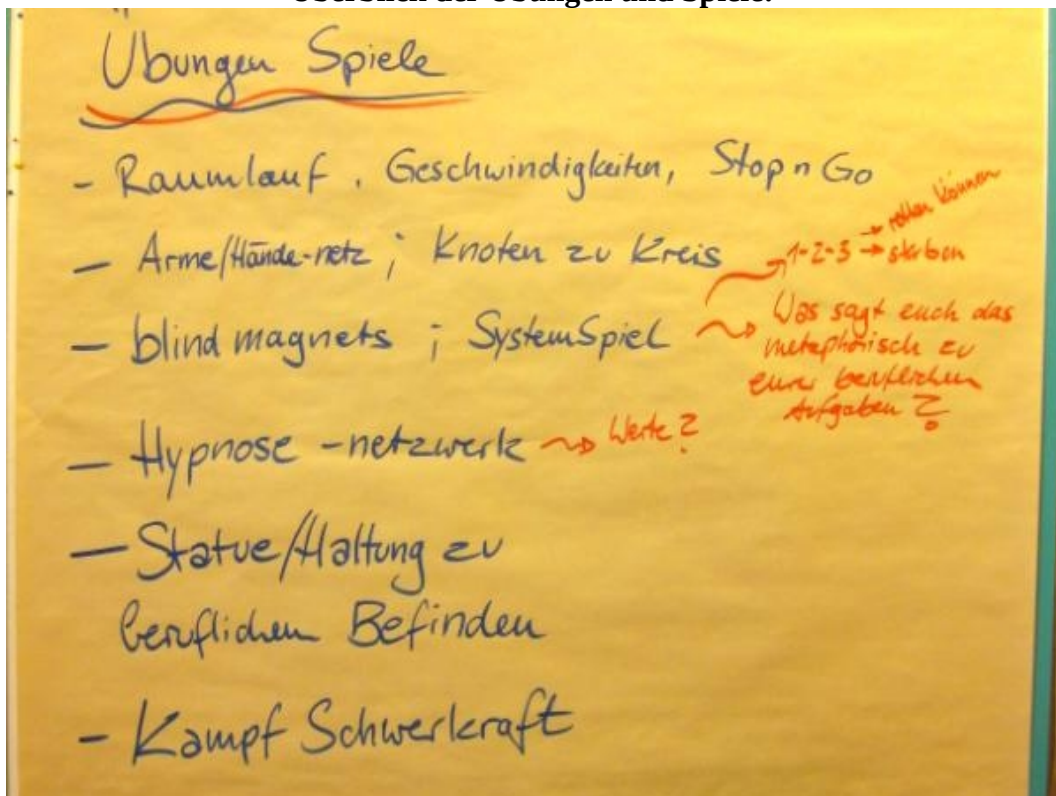 Überblick der Übungen und Spiele:
Übungen Spiele
- Raumlauf, Geschwindigkeiten, Stop n Go
- Arme/Hände-netz ; Knoten zu Kreis
1-2-3 → sterben
→ retten können
- blind magnets ; SystemSpiel
Was sagt euch das
metaphorisch zu
eurer beruflichen
Aufgaben ?
- Hypnose -netzwerk
Werte ?
- Statue/Haltung zu
beruflichen Befinden
- Kampf Schwerkraft